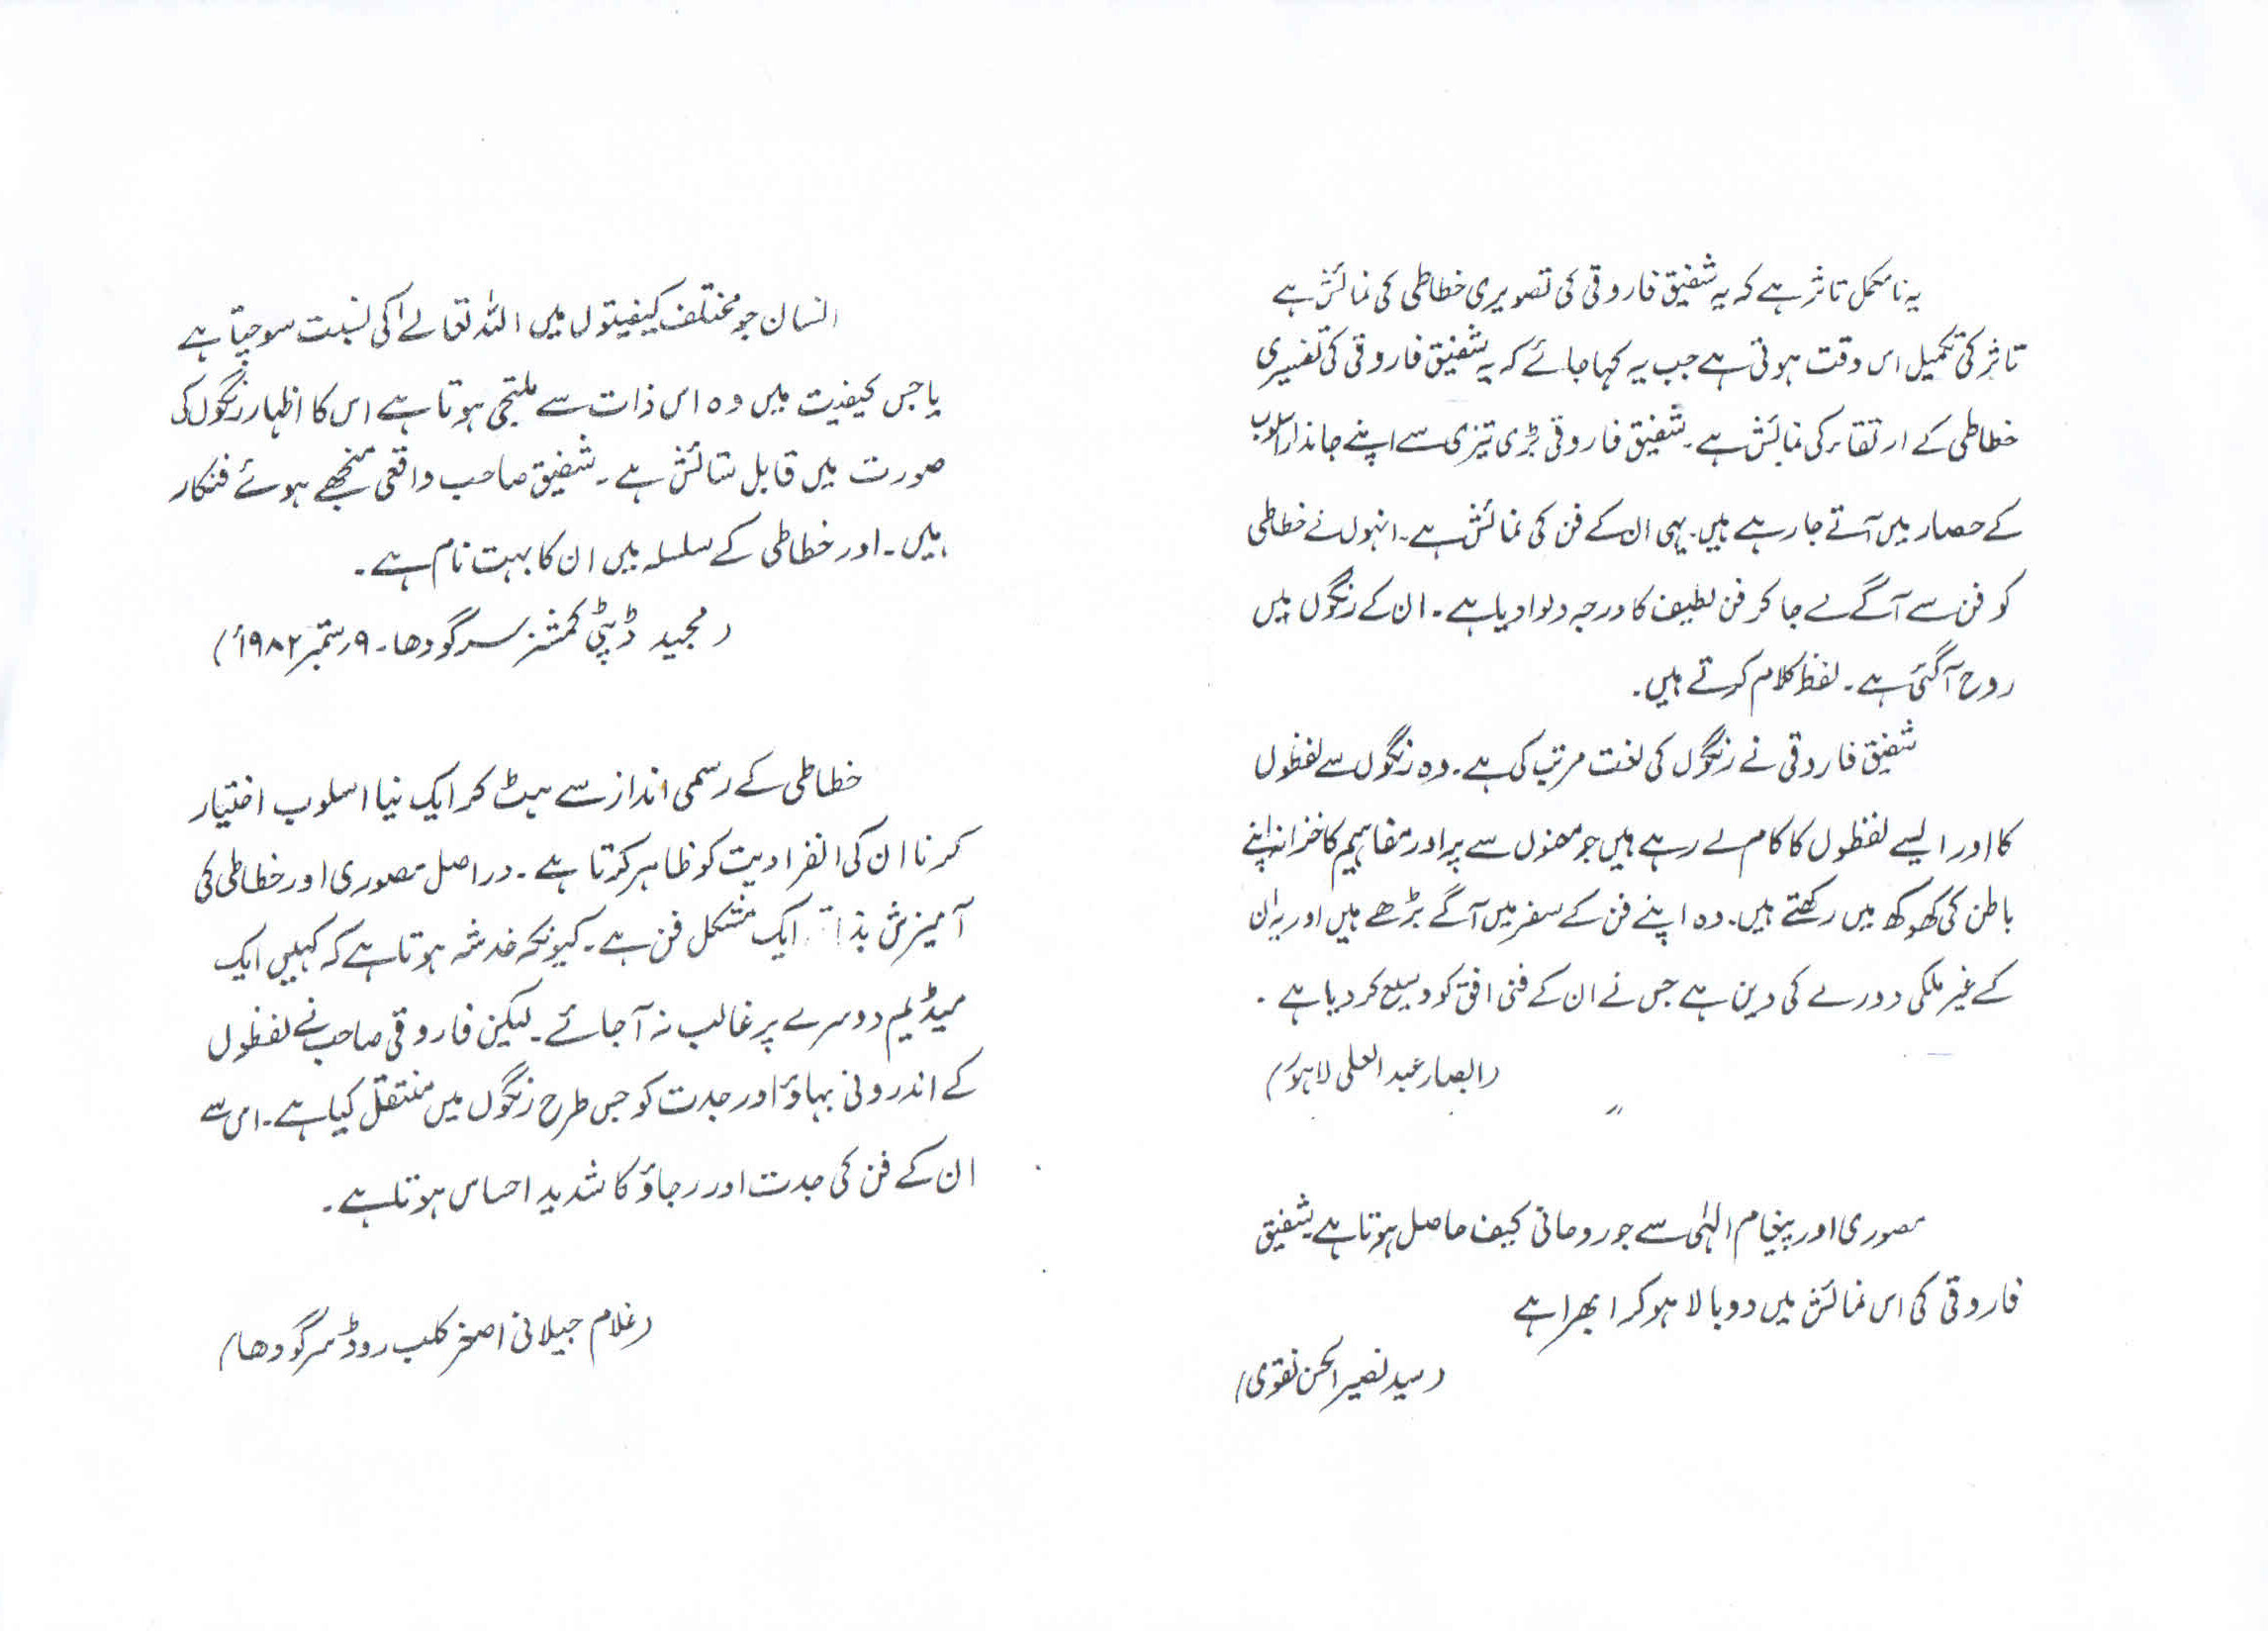 یہ نا مکمل تاثر ہے کہ یہ شفیق فاروقی کی تصویری خطاطی کی نمائش ہے
تاثر کی تکمیل اس وقت ہوتی ہے جب یہ کہا جائے کہ یہ شفیق فاروقی کی تفسیری
خطاطی کے ارتقاء کی نمائش ہے۔ شفیق فاروقی بڑی تیزی سے اپنے جاندار اسلوب
کے حصار میں آتے جا رہے ہیں۔ یہی ان کے فن کی نمائش ہے۔ انہوں نے خطاطی
کو فن سے آگے لے جا کر فن لطیف کا درجہ دلوا دیا ہے۔ ان کے رنگوں میں
روح آگئی ہے۔ لفظ کلام کرتے ہیں۔
شفیق فاروقی نے رنگوں کی لغت مرتب کی ہے۔ وہ رنگوں سے لفظوں
کا اور ایسے لفظوں کا کام لے رہے ہیں جو معنوں سے پر اور مفاہیم کا خزانہ اپنے
باطن کی کھوکھ میں رکھتے ہیں۔ وہ اپنے فن کے سفر میں آگے بڑھے ہیں اور یہ ان
کے غیر ملکی دورے کی دین ہے جس نے ان کے فنی افق کو وسیع کر دیا ہے۔
(ابصار عبد العلی لاہور)
مصوری اور پیغام الہٰی سے جو روحانی کیف حاصل ہوتا ہے شفیق
فاروقی کی اس نمائش میں دوبالا ہو کر ابھرا ہے
(سید نصیر الحسن نقوی)
انسان جو مختلف کیفیتوں میں اللہ تعالےٰ کی نسبت سوچتا ہے
یا جس کیفیت میں وہ اس ذات سے ملتجی ہوتا ہے اس کا اظہار رنگوں کی
صورت میں قابل ستائش ہے۔ شفیق صاحب واقعی منجھے ہوئے فنکار
ہیں۔ اور خطاطی کے سلسلہ میں ان کا بہت نام ہے۔
(مجید ڈپٹی کمشنر سرگودھا۔ ۹ ستمبر ۱۹۸۲ء)
خطاطی کے رسمی انداز سے ہٹ کر ایک نیا اسلوب اختیار
کرنا ان کی انفرادیت کو ظاہر کرتا ہے۔ دراصل مصوری اور خطاطی کی
آمیزش ایک مشکل فن ہے۔ کیونکہ خدشہ ہوتا ہے کہ کہیں ایک
میڈیم دوسرے پر غالب نہ آجائے۔ لیکن فاروقی صاحب نے لفظوں
کے اندرونی بہاؤ اور جدت کو جس طرح رنگوں میں منتقل کیا ہے۔ اس سے
ان کے فن کی جدت اور رچاؤ کا شدید احساس ہوتا ہے۔
(غلام جیلانی اصغر کلب روڈ سرگودھا)